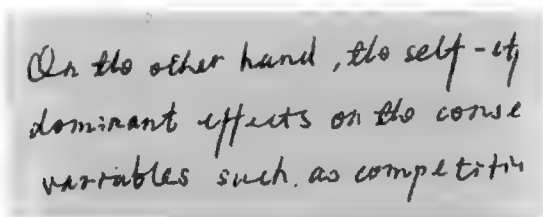 On the other hand, the self-
dominant effects on the conse
variables such. as competitiv